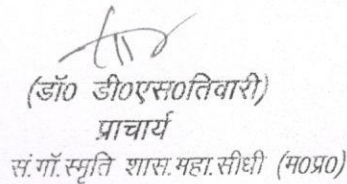 (डॉ0 डी0एस0तिवारी)
प्राचार्य
सं.गाॅ.स्मृति शास.महा.सीधी (म0प्र0)